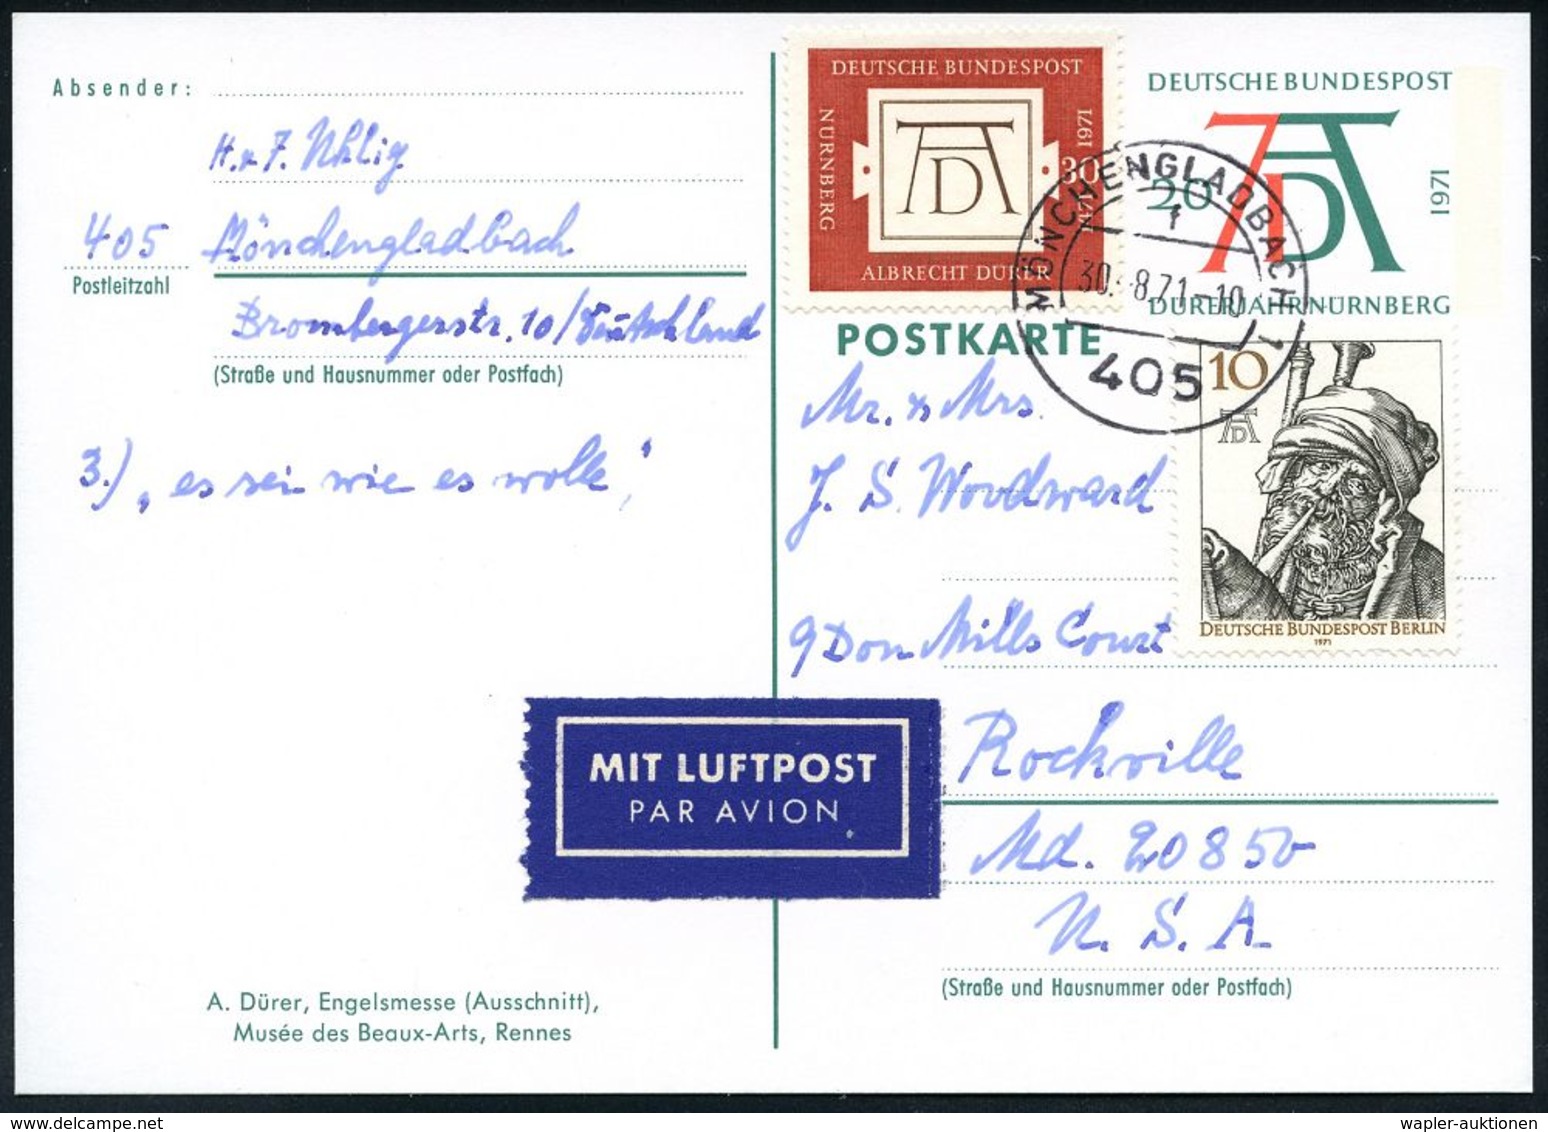 Absender:
H. & F. Uhlig
405 Mönchengladbach
Postleitzahl
Brombergerstr. 10/Deutschland
(Straße und Hausnummer oder Postfach)
3.) „es sei wie es wolle,"
DEUTSCHE BUNDESPOST
NÜRNBERG
1471 1971
30
AD
ALBRECHT DÜRER
DEUTSCHE BUNDESPOST
20
AD
1971
DÜRERJAHR NÜRNBERG
MÖNCHENGLADBACH 1
f
30.-8.71-10
405
POSTKARTE
10
AD
DEUTSCHE BUNDESPOST BERLIN
1971
Mr. & Mrs.
J. S. Woodward
9 Don Mills Court
Rockville
Md. 20850
U. S. A.
(Straße und Hausnummer oder Postfach)
MIT LUFTPOST
PAR AVION
A. Dürer, Engelsmesse (Ausschnitt),
Musée des Beaux-Arts, Rennes
wapler-auktionen